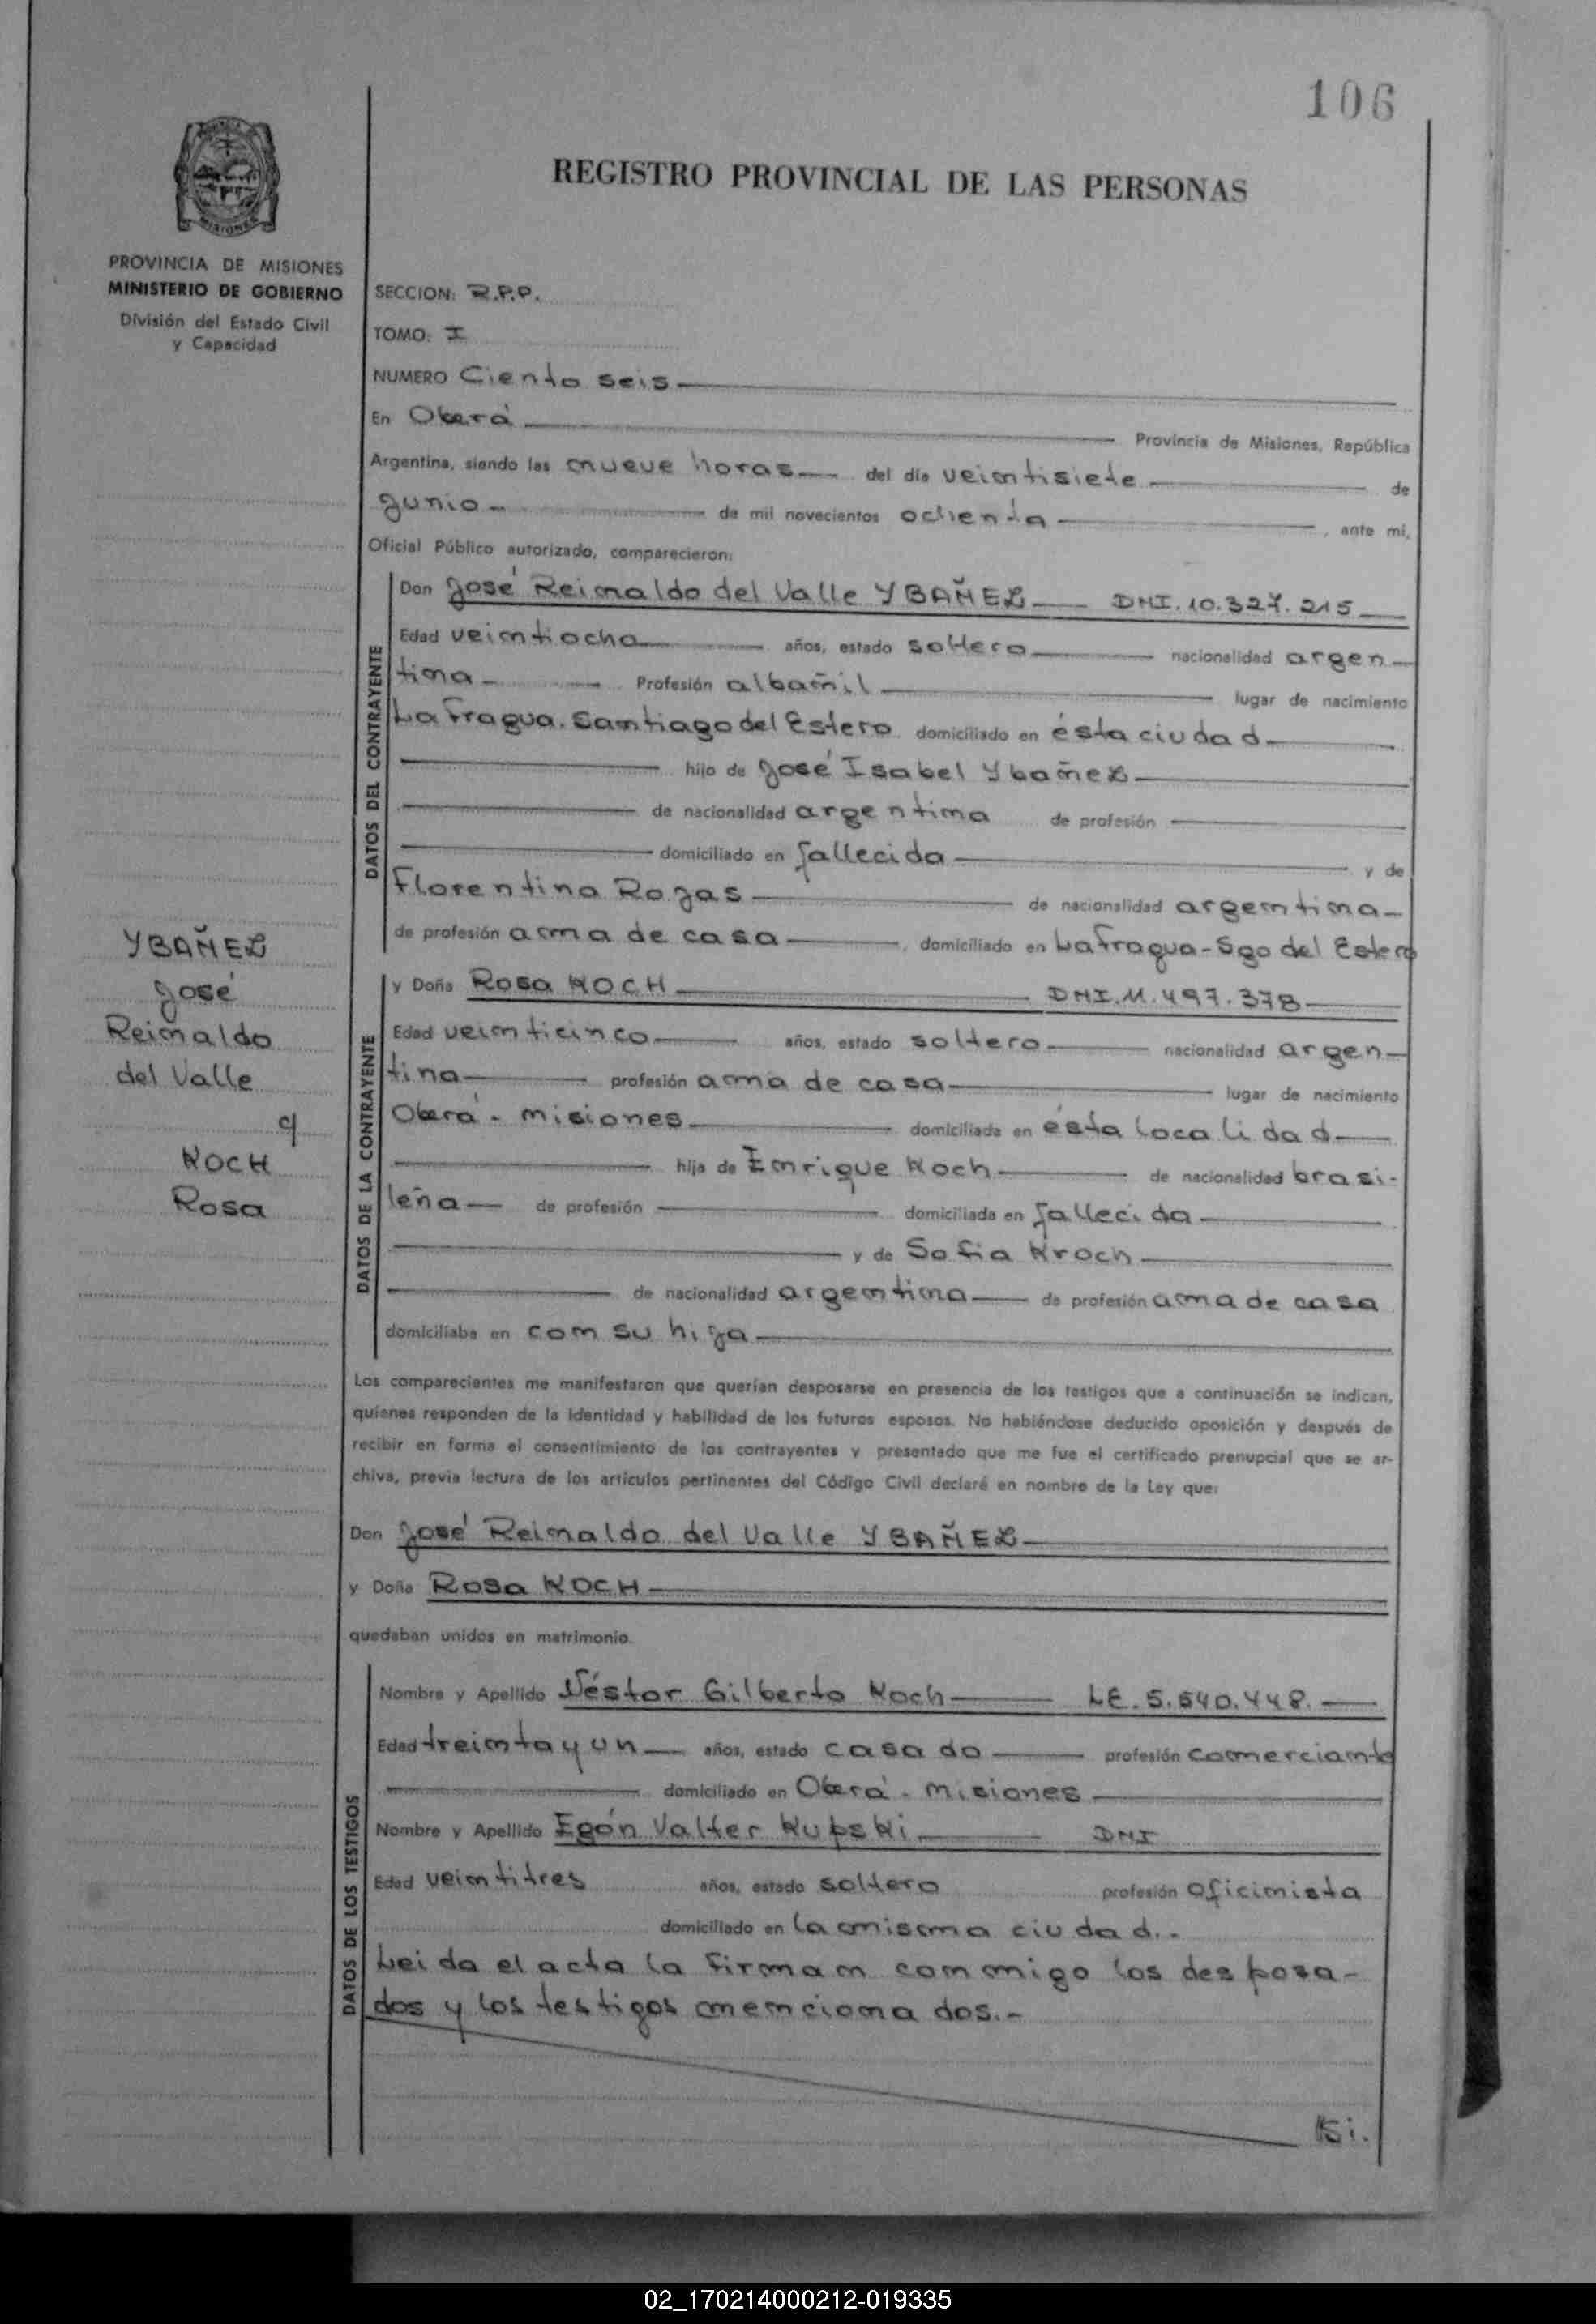 106
REGISTRO PROVINCIAL DE LAS PERSONAS
PROVINCIA DE MISIONES
MINISTERIO DE GOBIERNO
División del Estado Civil
y Capacidad
SECCION: R.P.P.
TOMO: I
NUMERO Ciento seis
En Oberá Provincia de Misiones, República
Argentina, siendo las nueve horas del día veintisiete de
Junio de mil novecientos ochenta, ante mí,
Oficial Público autorizado, comparecieron:
DATOS DEL CONTRAYENTE
Don José Reinaldo del Valle YBAÑEZ DNI. 10.327.215
Edad veintiocho años, estado soltero nacionalidad argen-
tina Profesión albañil lugar de nacimiento
La Fragua. Santiago del Estero domiciliado en ésta ciudad
hijo de José Isabel Ybañez
de nacionalidad argentina de profesión
domiciliado en fallecida y de
Florentina Rojas de nacionalidad argentina
de profesión ama de casa, domiciliado en La Fragua-Sgo del Estero
YBAÑEZ
José
Reinaldo
del Valle
c/
KOCH
Rosa
DATOS DE LA CONTRAYENTE
y Doña Rosa KOCH DNI. 11.497.378
Edad veinticinco años, estado soltero nacionalidad argen-
tina profesión ama de casa lugar de nacimiento
Oberá - misiones domiciliada en ésta localidad
hija de Enrique Koch de nacionalidad brasi-
leña de profesión domiciliada en fallecida
y de Sofia Kroch
de nacionalidad argentina de profesión ama de casa
domiciliaba en con su hija
Los comparecientes me manifestaron que querían desposarse en presencia de los testigos que a continuación se indican,
quienes responden de la identidad y habilidad de los futuros esposos. No habiéndose deducido oposición y después de
recibir en forma el consentimiento de los contrayentes y presentado que me fue el certificado prenupcial que se ar-
chiva, previa lectura de los artículos pertinentes del Código Civil declaré en nombre de la Ley que:
Don José Reinaldo del Valle YBAÑEZ
y Doña Rosa KOCH
quedaban unidos en matrimonio.
DATOS DE LOS TESTIGOS
Nombre y Apellido Néstor Gilberto Koch LE. 5.540.448.
Edad treinta y un años, estado casado profesión comerciante
domiciliado en Oberá - misiones
Nombre y Apellido Egón Valter Kupski DNI
Edad veintitres años, estado soltero profesión oficinista
domiciliado en la misma ciudad.-
Leida el acta la firman conmigo los desposa-
dos y los testigos mencionados.-
02_170214000212-019335